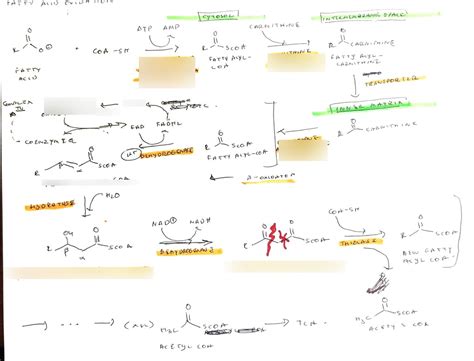 FATTY ACID OXIDATION
CYTOSOL
INTERMEMBRANE SPACE
ATP AMP
CARNITHINE
R O⊖ + COA-SH
R SCOA
R CARNITHINE
FATTY ACID
FATTY ACYL-COA
FATTY ACYL-CARNITHINE
TRANSPORTER
INNER MATRIX
COMPLEX
COENZYME Q
FAD FADH2
DEHYDROGENASE
R SCOA
FATTY ACYL-COA
R CARNITHINE
R SCOA
β-OXIDATION
HYDRATASE
H2O
OH O
R β α SCOA
NAD⊕ NADH
DEHYDROGENASE
O O
R SCOA
COA-SH
THIOLASE
R SCOA
NEW FATTY ACYL COA
H3C SCOA
ACETYL COA
H3C SCOA
ACETYL COA
TCA